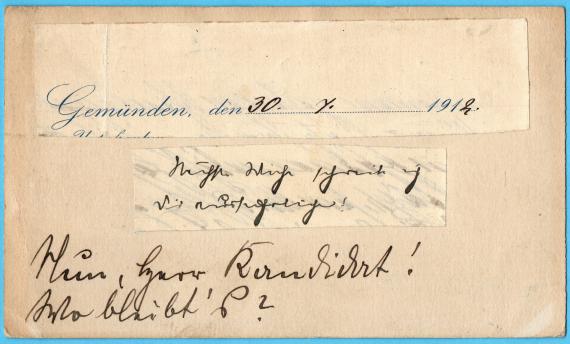 Gemünden, den 30. 7. 1912.
Nächste Woche schreib ich
Dir ausführlicher!
Nun, Herr Kandidat!
Wo bleibt's?